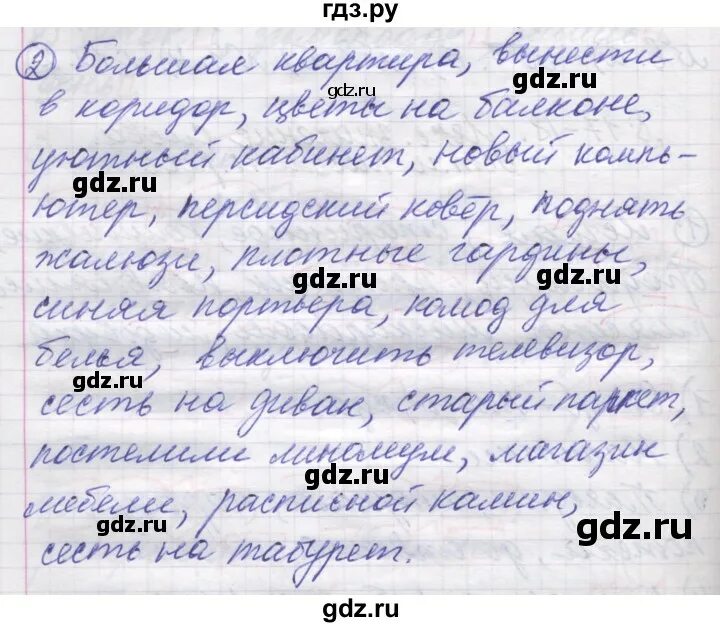 гдз.ру
② Большая квартира, вынести
в коридор, цветы на балконе,
уютный кабинет, новый компь-
ютер, персидский ковёр, поднять
жалюзи, плотные гардины,
синяя портьера, комод для
белья, выключить телевизор,
сесть на диван, старый паркет,
постелили линолеум, магазин
мебели, расписной камин,
сесть на табурет.
gdz.ru
gdz.ru
gdz.ru
gdz.ru
gdz.ru
gdz.ru
gdz.ru
gdz.ru
gdz.ru
gdz.ru
gdz.ru
gdz.ru
gdz.ru